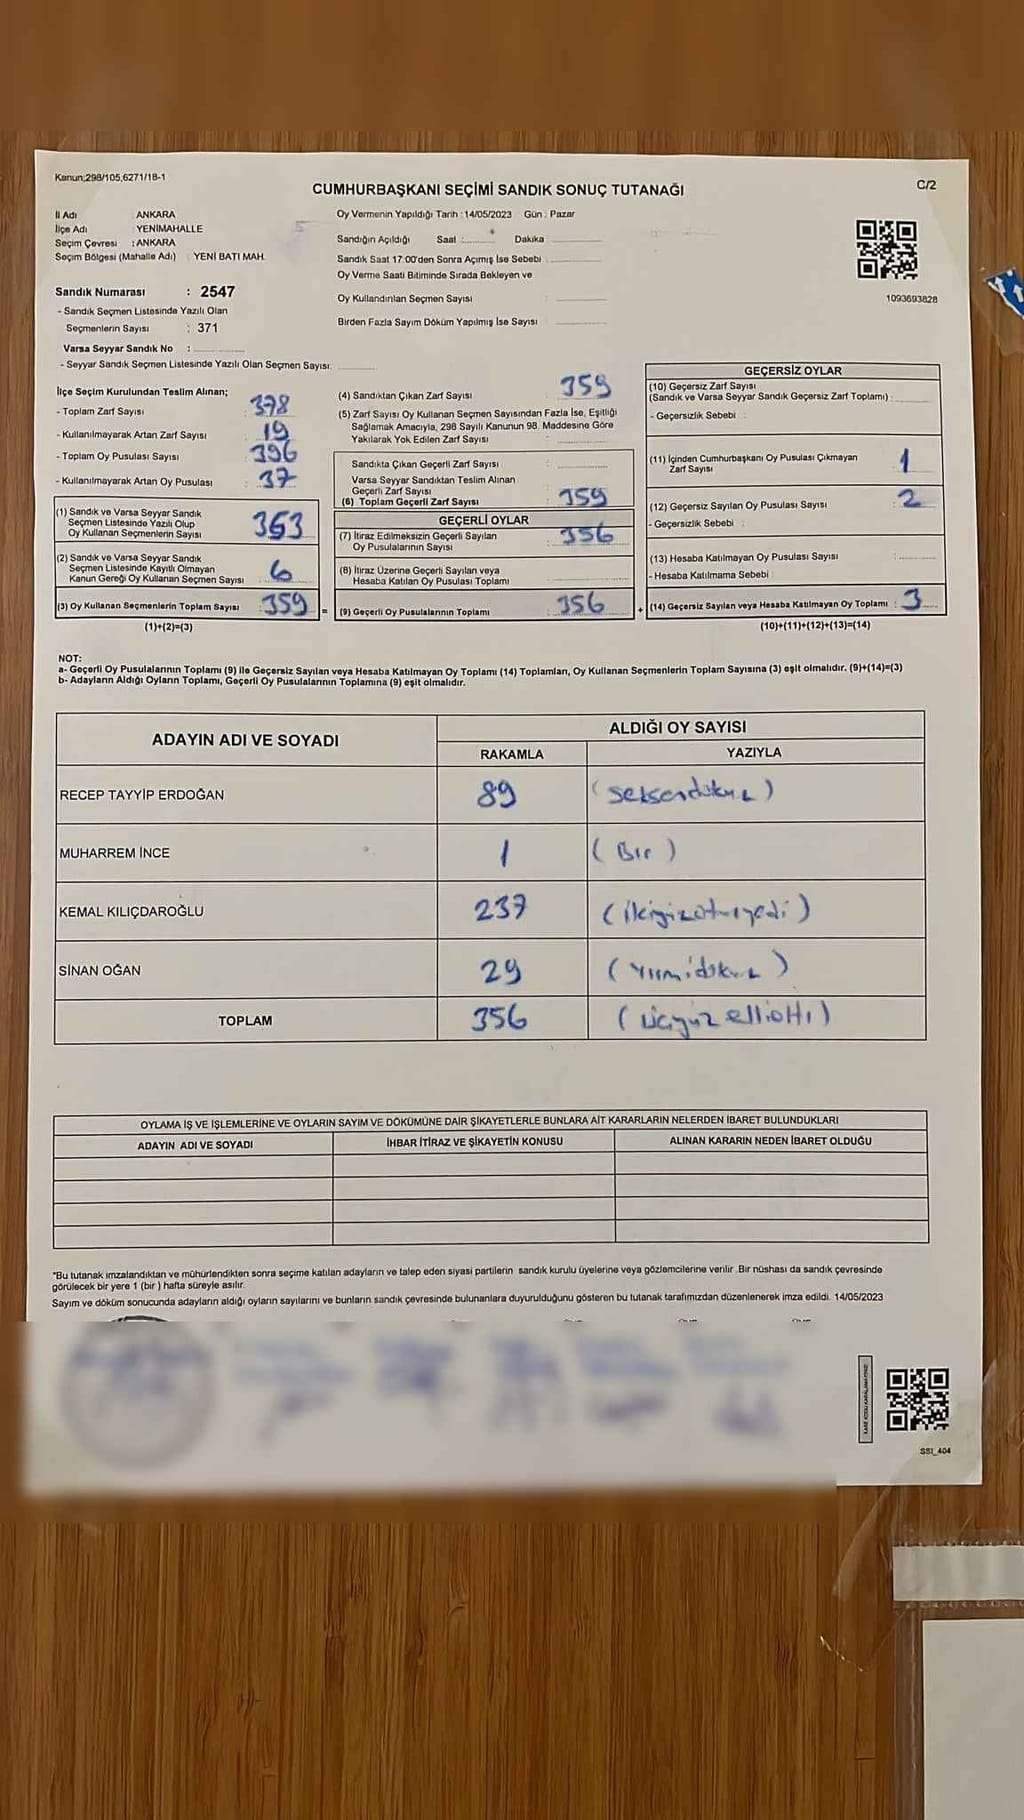 Kanun;298/105,6271/18-1
CUMHURBAŞKANI SEÇİMİ SANDIK SONUÇ TUTANAĞI
C/2
İl Adı ANKARA
İlçe Adı YENİMAHALLE
Seçim Çevresi : ANKARA
Seçim Bölgesi (Mahalle Adı) YENİ BATI MAH.
Sandık Numarası : 2547
- Sandık Seçmen Listesinde Yazılı Olan
Seçmenlerin Sayısı : 371
Varsa Seyyar Sandık No :
- Seyyar Sandık Seçmen Listesinde Yazılı Olan Seçmen Sayısı:
Oy Vermenin Yapıldığı Tarih : 14/05/2023 Gün : Pazar
Sandığın Açıldığı Saat : Dakika
Sandık Saat 17:00'den Sonra Açımış İse Sebebi
Oy Verme Saati Bitiminde Sırada Bekleyen ve
Oy Kullandırılan Seçmen Sayısı :
Birden Fazla Sayım Döküm Yapılmış İse Sayısı :
1093693828
İlçe Seçim Kurulundan Teslim Alınan;
- Toplam Zarf Sayısı : 378
- Kullanılmayarak Artan Zarf Sayısı : 19
- Toplam Oy Pusulası Sayısı : 396
- Kullanılmayarak Artan Oy Pusulası : 37
(1) Sandık ve Varsa Seyyar Sandık
Seçmen Listesinde Yazılı Olup
Oy Kullanan Seçmenlerin Sayısı 353
(2) Sandık ve Varsa Seyyar Sandık
Seçmen Listesinde Kayıtlı Olmayan
Kanun Gereği Oy Kullanan Seçmen Sayısı 6
(3) Oy Kullanan Seçmenlerin Toplam Sayısı : 359 =
(1)+(2)=(3)
(4) Sandıktan Çıkan Zarf Sayısı : 359
(5) Zarf Sayısı Oy Kullanan Seçmen Sayısından Fazla İse, Eşitliği
Sağlamak Amacıyla, 298 Sayılı Kanunun 98. Maddesine Göre
Yakılarak Yok Edilen Zarf Sayısı :
Sandıkta Çıkan Geçerli Zarf Sayısı :
Varsa Seyyar Sandıktan Teslim Alınan
Geçerli Zarf Sayısı
(6) Toplam Geçerli Zarf Sayısı : 359
GEÇERLİ OYLAR
(7) İtiraz Edilmeksizin Geçerli Sayılan
Oy Pusulalarının Sayısı : 356
(8) İtiraz Üzerine Geçerli Sayılan veya
Hesaba Katılan Oy Pusulası Toplamı :
(9) Geçerli Oy Pusulalarının Toplamı : 356 +
GEÇERSİZ OYLAR
(10) Geçersiz Zarf Sayısı
(Sandık ve Varsa Seyyar Sandık Geçersiz Zarf Toplamı) :
- Geçersizlik Sebebi :
(11) İçinden Cumhurbaşkanı Oy Pusulası Çıkmayan
Zarf Sayısı 1
(12) Geçersiz Sayılan Oy Pusulası Sayısı : 2
- Geçersizlik Sebebi :
(13) Hesaba Katılmayan Oy Pusulası Sayısı :
- Hesaba Katılmama Sebebi :
(14) Geçersiz Sayılan veya Hesaba Katılmayan Oy Toplamı : 3
(10)+(11)+(12)+(13)=(14)
NOT:
a- Geçerli Oy Pusulalarının Toplamı (9) ile Geçersiz Sayılan veya Hesaba Katılmayan Oy Toplamı (14) Toplamları, Oy Kullanan Seçmenlerin Toplam Sayısına (3) eşit olmalıdır. (9)+(14)=(3)
b- Adayların Aldığı Oyların Toplamı, Geçerli Oy Pusulalarının Toplamına (9) eşit olmalıdır.
ADAYIN ADI VE SOYADI ALDIĞI OY SAYISI
RAKAMLA YAZIYLA
RECEP TAYYİP ERDOĞAN 89 (seksendokuz)
MUHARREM İNCE 1 (Bir)
KEMAL KILIÇDAROĞLU 237 (ikiyüzotuzyedi)
SİNAN OĞAN 29 (Yirmidokuz)
TOPLAM 356 (üçyüzellialtı)
OYLAMA İŞ VE İŞLEMLERİNE VE OYLARIN SAYIM VE DÖKÜMÜNE DAİR ŞİKAYETLERLE BUNLARA AİT KARARLARIN NELERDEN İBARET BULUNDUKLARI
ADAYIN ADI VE SOYADI İHBAR İTİRAZ VE ŞİKAYETİN KONUSU ALINAN KARARIN NEDEN İBARET OLDUĞU
*Bu tutanak imzalandıktan ve mühürlendikten sonra seçime katılan adayların ve talep eden siyasi partilerin sandık kurulu üyelerine veya gözlemcilerine verilir .Bir nüshası da sandık çevresinde
görülecek bir yere 1 (bir ) hafta süreyle asılır.
Sayım ve döküm sonucunda adayların aldığı oyların sayılarını ve bunların sandık çevresinde bulunanlara duyurulduğunu gösteren bu tutanak tarafımızdan düzenlenerek imza edildi. 14/05/2023
SSI_404